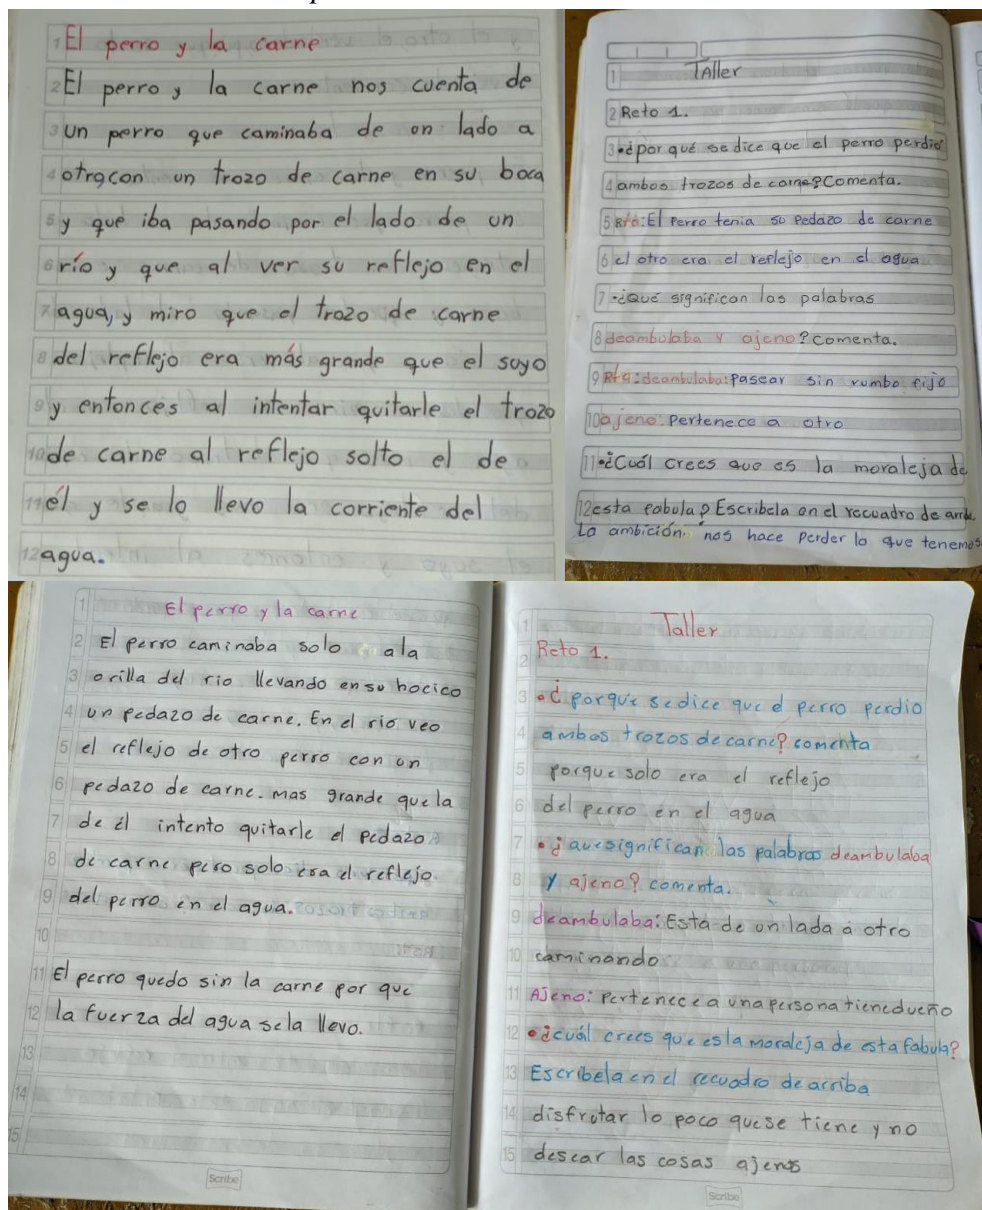 El perro y la carne
El perro y la carne nos cuenta de
un perro que caminaba de un lado a
otracon un trozo de carne en su boca
y que iba pasando por el lado de un
río y que al ver su reflejo en el
agua, y miro que el trozo de carne
del reflejo era más grande que el suyo
y entonces al intentar quitarle el trozo
de carne al reflejo solto el de
él y se lo llevo la corriente del
agua.
Taller
Reto 1.
•¿por qué se dice que el perro perdió
ambos trozos de carne? Comenta.
Rta: El Perro tenia su pedazo de carne
el otro era el reflejo en el agua
•¿Qué significan las palabras
deambulaba y ajeno? comenta.
Rta: deambulaba: Pasear sin rumbo fijo
ajeno: Pertenece a otro
•¿Cuál crees que es la moraleja de
esta fabula? Escribela en el recuadro de arriba.
La ambición nos hace perder lo que tenemos
El perro y la carne
El perro caminaba solo a la
orilla del rio llevando en su hocico
un pedazo de carne. En el rio veo
el reflejo de otro perro con un
pedazo de carne. mas grande que la
de él intento quitarle el pedazo
de carne pero solo era el reflejo
del perro en el agua.
El perro quedo sin la carne por que
la fuerza del agua se la llevo.
Scribe
Taller
Reto 1.
•¿porque se dice que el perro perdio
ambos trozos de carne? comenta
porque solo era el reflejo
del perro en el agua
•¿que significan las palabras deambulaba
y ajeno? comenta.
deambulaba: Está de un lada a otro
caminando
Ajeno: Pertenece a una persona tiene dueño
•¿cuál crees que es la moraleja de esta fabula?
Escribela en el recuadro de arriba
disfrutar lo poco que se tiene y no
desear las cosas ajenas
Scribe